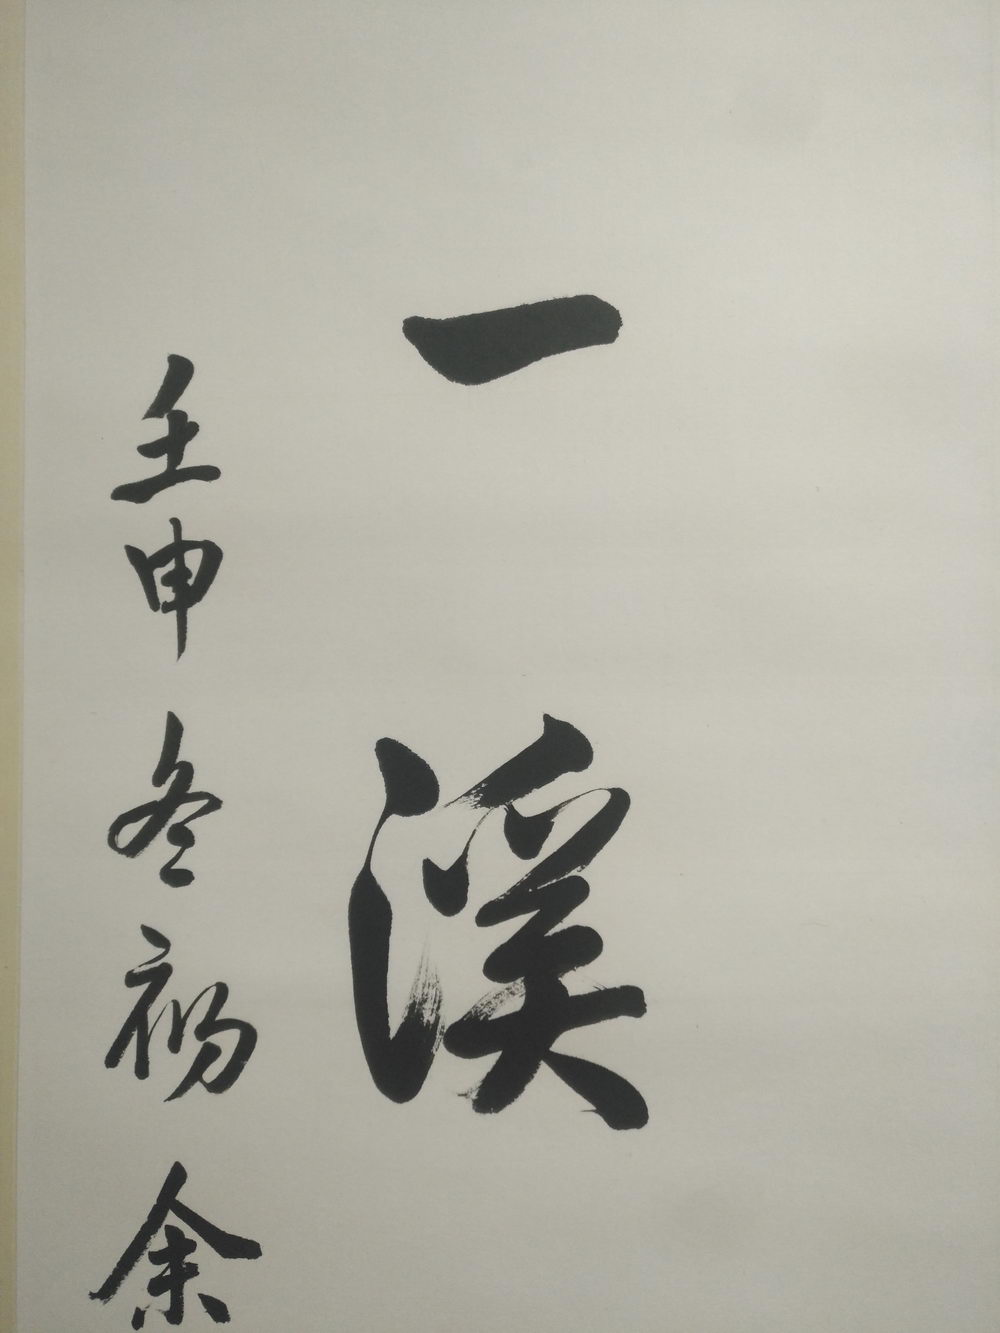 一溪
壬申冬初余